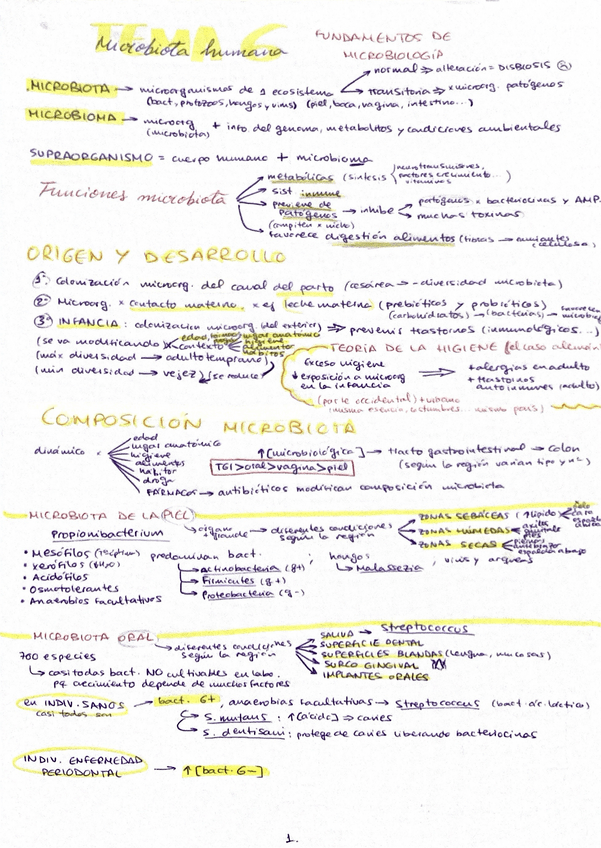 TEMA 6
Microbiota humana
FUNDAMENTOS DE
MICROBIOLOGÍA
MICROBIOTA → microorganismos de 1 ecosistema
normal ⇒ alteración = DISBIOSIS
transitoria ⇒ x microorg. patógenos
(bact, protozoos, hongos y virus) (piel, boca, vagina, intestino...)
MICROBIOMA → microorg + info del genoma, metabolitos y condiciones ambientales
(microbiota)
SUPRAORGANISMO = cuerpo humano + microbioma
Funciones microbiota
metabólicas (síntesis) (neurotransmisores, factores crecimiento... vitaminas)
sist inmune
previene de patógenos → inhibe
patógenos x bacteriocinas y AMP
muchas toxinas
(compiten x nicho)
favorece digestión alimentos (fibras → celulosa)
ORIGEN Y DESARROLLO
1º Colonización microorg. del canal del parto (cesárea → - diversidad microbiota)
2º Microorg. x contacto materno. x ej leche materna (prebióticos y probióticos)
(carbohidratos) → (bacterias) →
3º INFANCIA: colonización microorg (del exterior) ⇒ prevenir trastornos (inmunológicos...)
(se va modificando) x contexto
edad,
lugar anatómico
higiene
alimentos
hábitos
(máx diversidad → adulto temprano)
(mín diversidad → vejez) (se reduce)
TEORÍA DE LA HIGIENE (el caso alemán
Exceso higiene
↓ exposición a microorg en la infancia
⇒
+ alergias en adulto
+ trastornos autoinmunes (adulto)
(parte occidental) + urbano
(misma esencia, costumbres... mismo país)
COMPOSICIÓN MICROBIOTA
dinámico
edad
lugar anatómico
higiene
alimentos
hábitos
droga
FÁRMACOS → antibióticos modifican composición microbiota
↑ [microbiológica] → tracto gastrointestinal → colon
TGI > oral > vagina > piel
(según la región varían tipo y nº)
MICROBIOTA DE LA PIEL
Propionibacterium
órgano + grande → diferentes condiciones según la región
ZONAS SEBÁCEAS (↑ lípido)
cara
espalda
ZONAS HÚMEDAS
axila
pies
ZONAS SECAS
piernas
antebrazo
espalda abajo
• Mesófilos
• Xerófilos (↓H2O)
• Acidófilos
• Osmotolerantes
• Anaerobios facultativos
predominan bact.
Actinobacteria (g+)
Firmicutes (g+)
Proteobacteria (g-)
; hongos
Malassezia
, virus y arqueas
MICROBIOTA ORAL
diferentes condiciones según la región
SALIVA → Streptococcus
SUPERFICIE DENTAL
SUPERFICIES BLANDAS (lengua, mucosas)
SURCO GINGIVAL
IMPLANTES ORALES
700 especies
casi todas bact. NO cultivables en labo.
pq crecimiento depende de muchos factores
en INDIV. SANOS → bact. G+, anaerobias facultativas → Streptococcus (bact. ác. láctico)
casi todos son
S. mutans: ↑ [ácido] ⇒ caries
S. dentisani: protege de caries liberando bacteriocinas
INDIV. ENFERMEDAD PERIODONTAL → ↑ [bact. G-]
1.